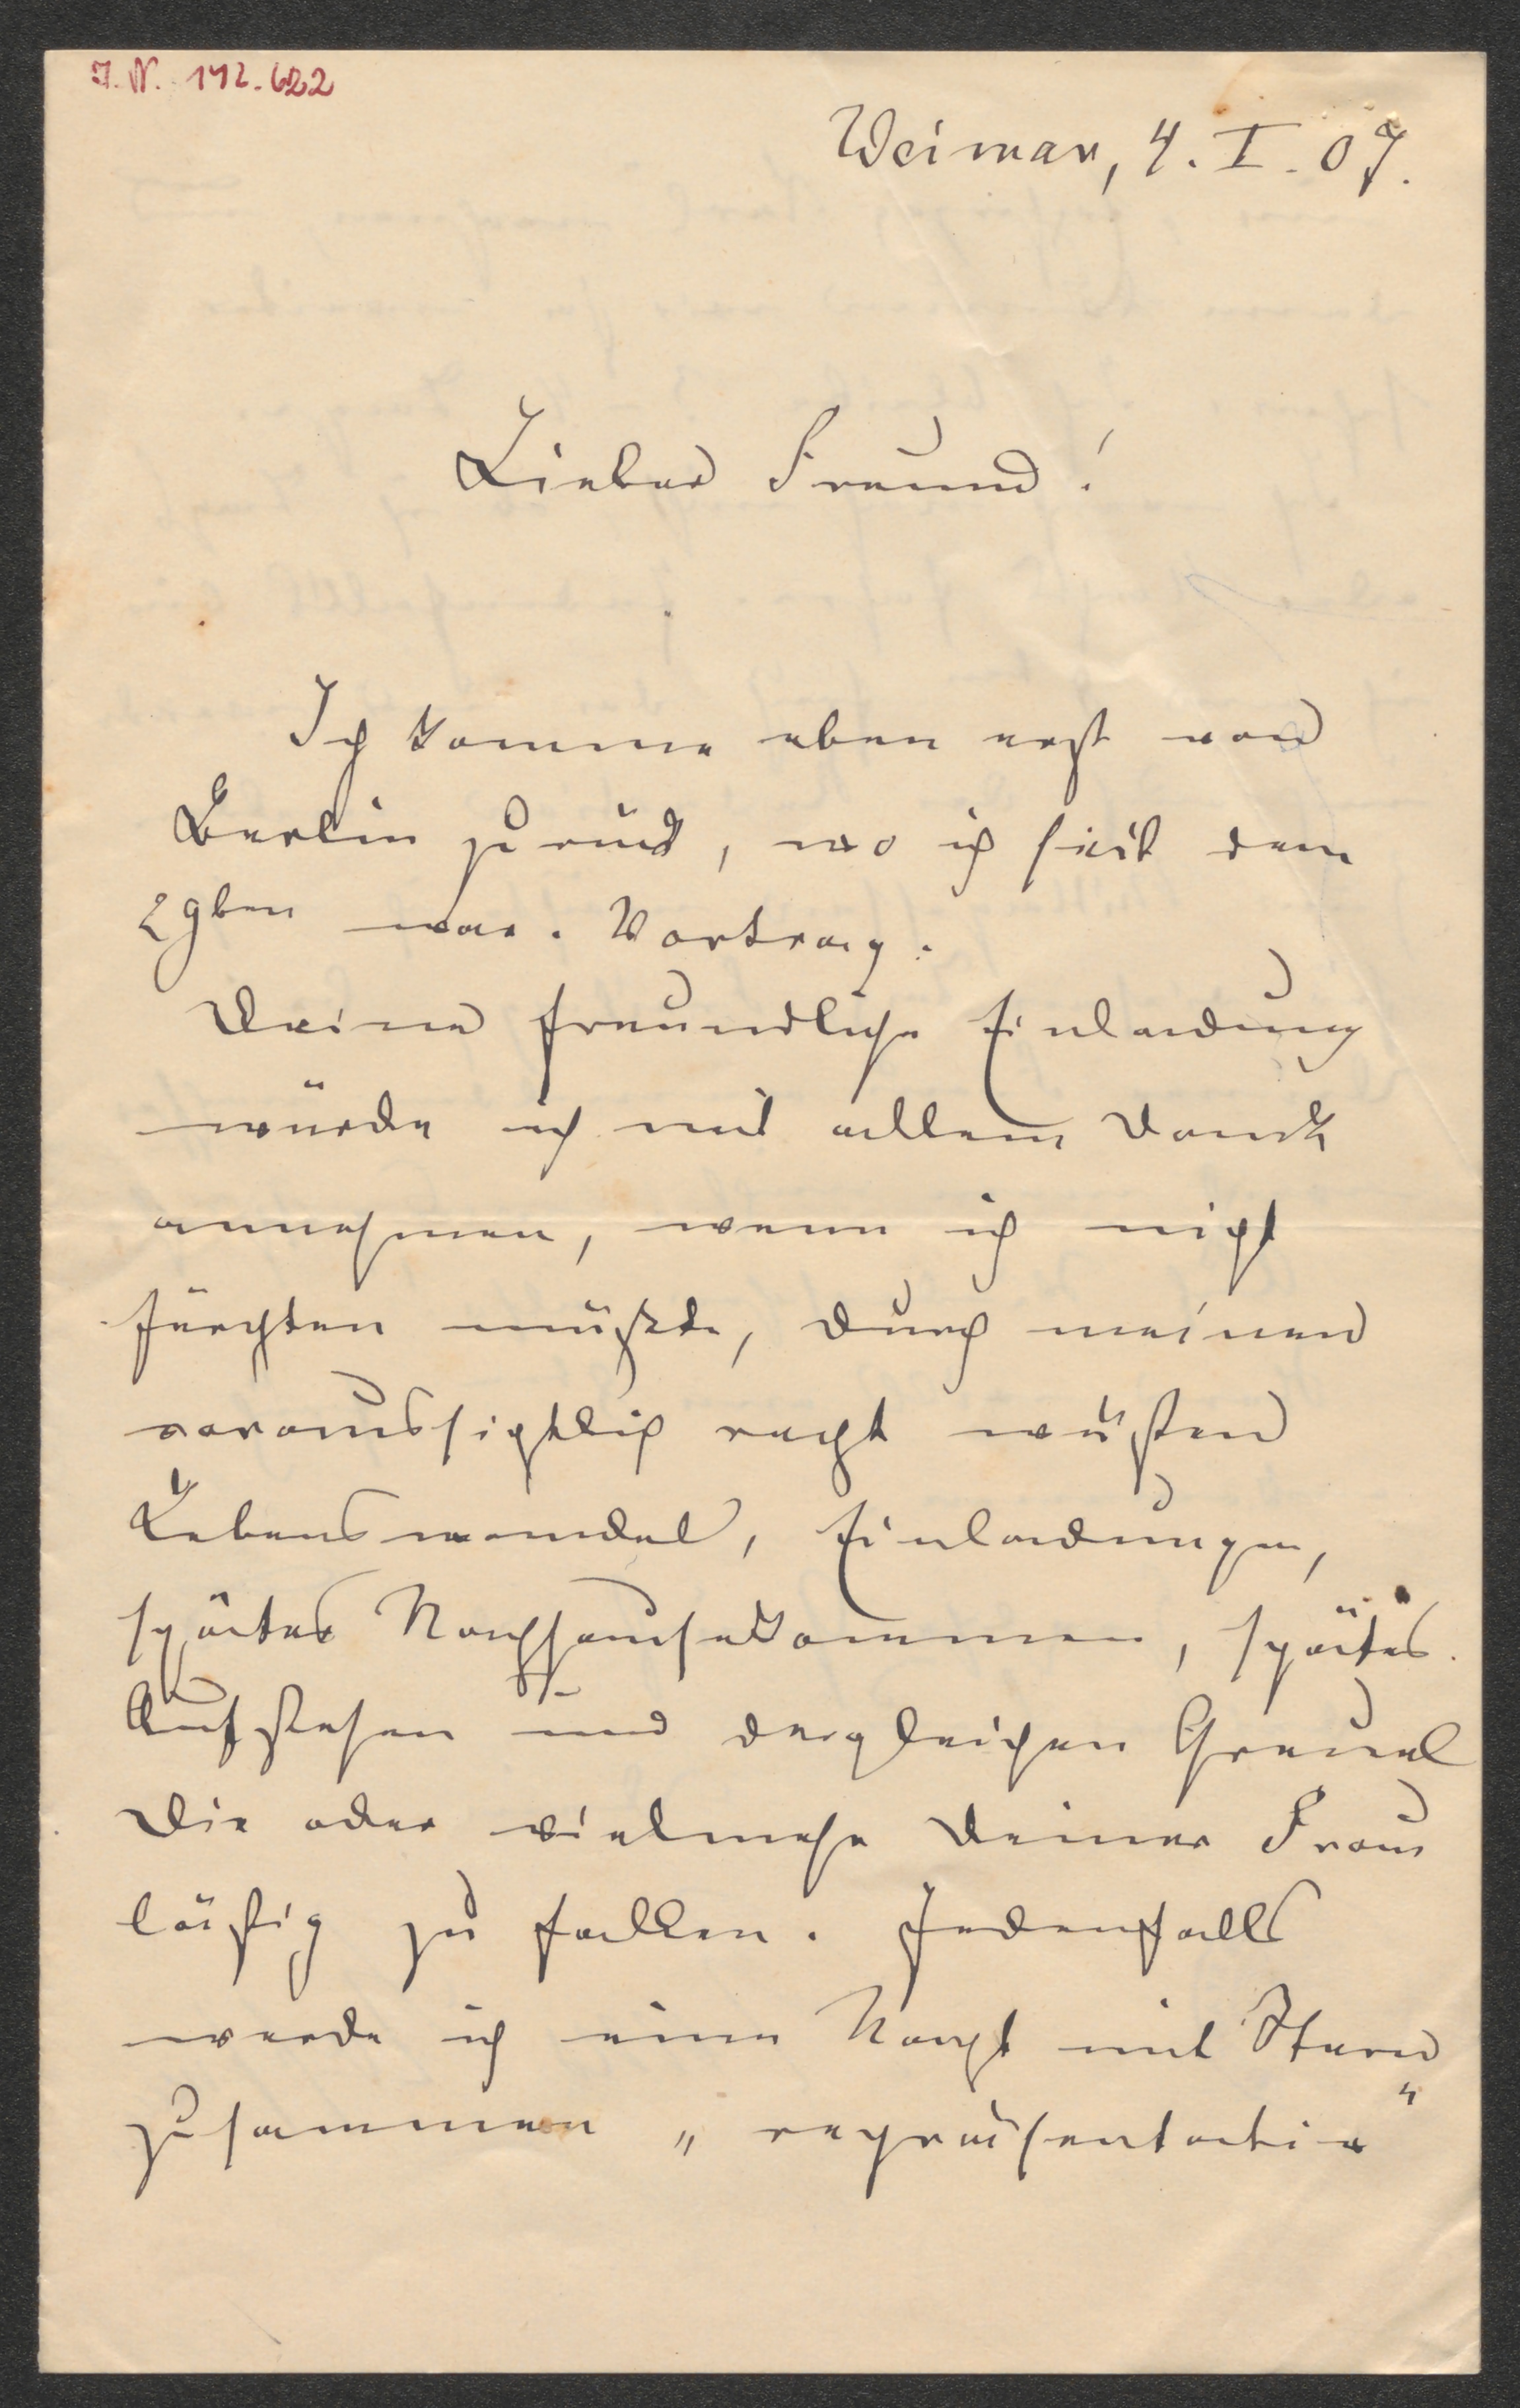 J.N. 142.622
Weimar, 4. I. 07.
Lieber Freund!
Ich komme eben erst von
Berlin zurück, wo ich seit dem
29ten war. Vortrag.
Deine freundliche Einladung
würde ich mit allem Dank
annehmen, wenn ich nicht
fürchten müßte, durch meinen
voraussichtlich recht wüsten
Lebenswandel, Einladungen,
spätes Nachhausekommen, spätes
Aufstehen und dergleichen Greuel
Dir oder vielmehr Deiner Frau
lästig zu fallen. Jedenfalls
werde ich eine Nacht mit Stern
zusammen „repräsentativ"